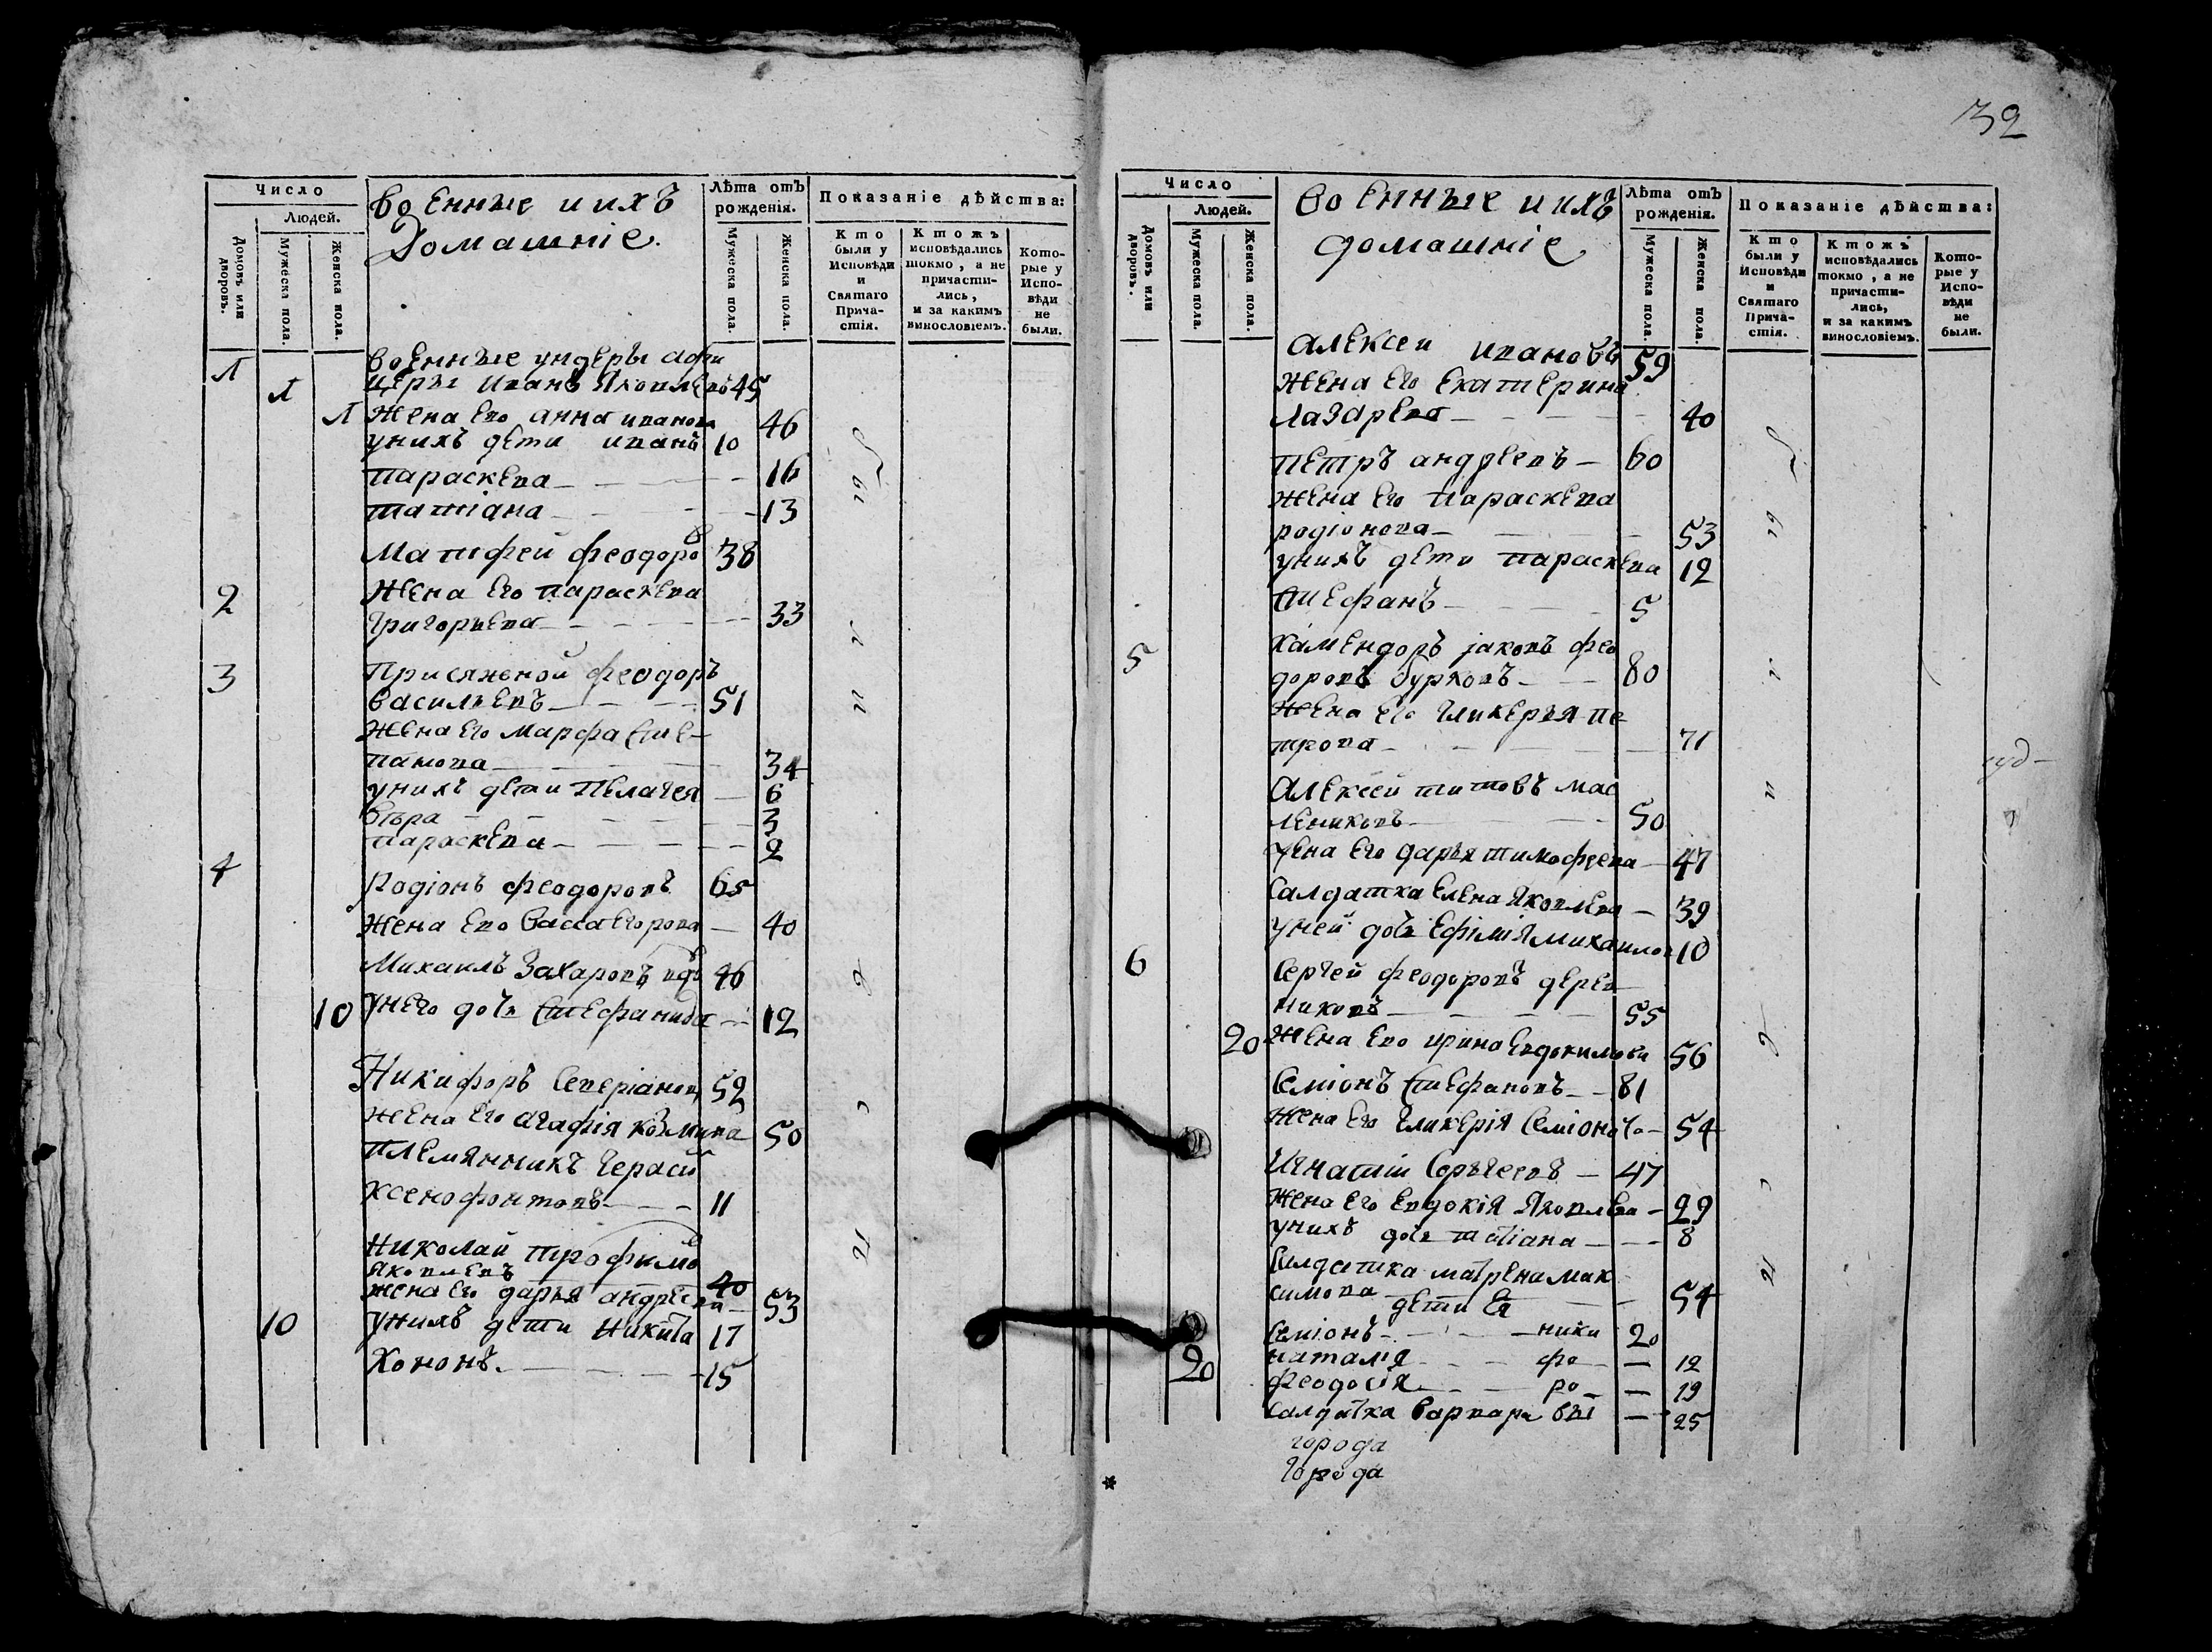 Число
Людей.
Домовъ или дворовъ.
Мужеска пола.
Женска пола.
военные и ихъ
Домашніе.
Лѣта отъ рожденія.
Мужеска пола.
Женска пола.
Показаніе дѣйства:
Кто были у Исповѣди и Святаго Прича-стія.
Ктожъ исповѣдались токмо, а не причасти-лись, и за какимъ винословіемъ.
Кото-рые у Испо-вѣди не были.
военные ундеръ афи
1 1 церы иванъ Яковлевъ 45
1 Жена Ево анна иванова 46
унихъ дети иванъ 10
параскева 16
татіана 13
Матфей феодоровъ 38
2 Жена Его параскева
Григорьева 33
3 Присяжной феодоръ
васильевъ 51
Жена Его марфа сте-
панова 34
унихъ дети Пелагея 6
вѣра 3
параскева 2
4 Родіонъ феодоровъ 65
Жена Ево васса Егорова 40
Михаилъ Захаровъ вдв 46
10 унего дочь стефанида 12
Никифоръ Северіановъ 52
жена Его агафія козмина 50
племянникъ гераси
ксенофонтовъ 11
Николай трофимо
яковлевъ 40
жена Его дарья андреева 53
10 унихъ дети Никита 17
Кононъ 15
были
и
д
с
ть
32
Число
Людей.
Домовъ или дворовъ.
Мужеска пола.
Женска пола.
военные и ихъ
домашніе
Лѣта отъ рожденія.
Мужеска пола.
Женска пола.
Показаніе дѣйства:
Кто были у Исповѣди и Святаго Прича-стія.
Ктожъ исповѣдались токмо, а не причасти-лись, и за какимъ винословіемъ.
Кото-рые у Испо-вѣди не были.
Алексеи ивановъ 59
Жена Его Екатерина
лазарева 40
Петръ андреевъ 60
Жена Его параскева
родіонова 53
унихъ дети параскева 12
стефанъ 5
5 камендоръ јаковъ фео
доровъ бурковъ 80
Жена Его гликерья пе
трова 71
Алексей титовъ мас
лениковъ 50
жена Его дарья тимофеева 47
Салдатка Елена Яковлева 39
уней дочь Ефімія михаилов 10
6 Сергей феодоровъ дерев
никовъ 55
20 Жена Ево ирина Евдокимова 56
Семіонъ стефановъ 81
Жена Его гликерія семіонова 54
Игнатіи сергеевъ 47
Жена Его Евдокія Яковлева 29
унихъ дочь татіана 8
Салдатка матрена мак
симова 54
дети Ея
Семіонъ ники 20
20 наталія фо 12
феодосія ро 19
салдатка варвара вы 25
города
города
*